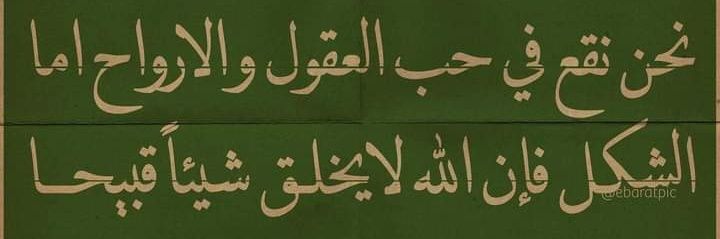 نحن نقع في حب العقول والارواح اما
الشكل فإن الله لايخلق شيئاً قبيحا
@ebaratpic